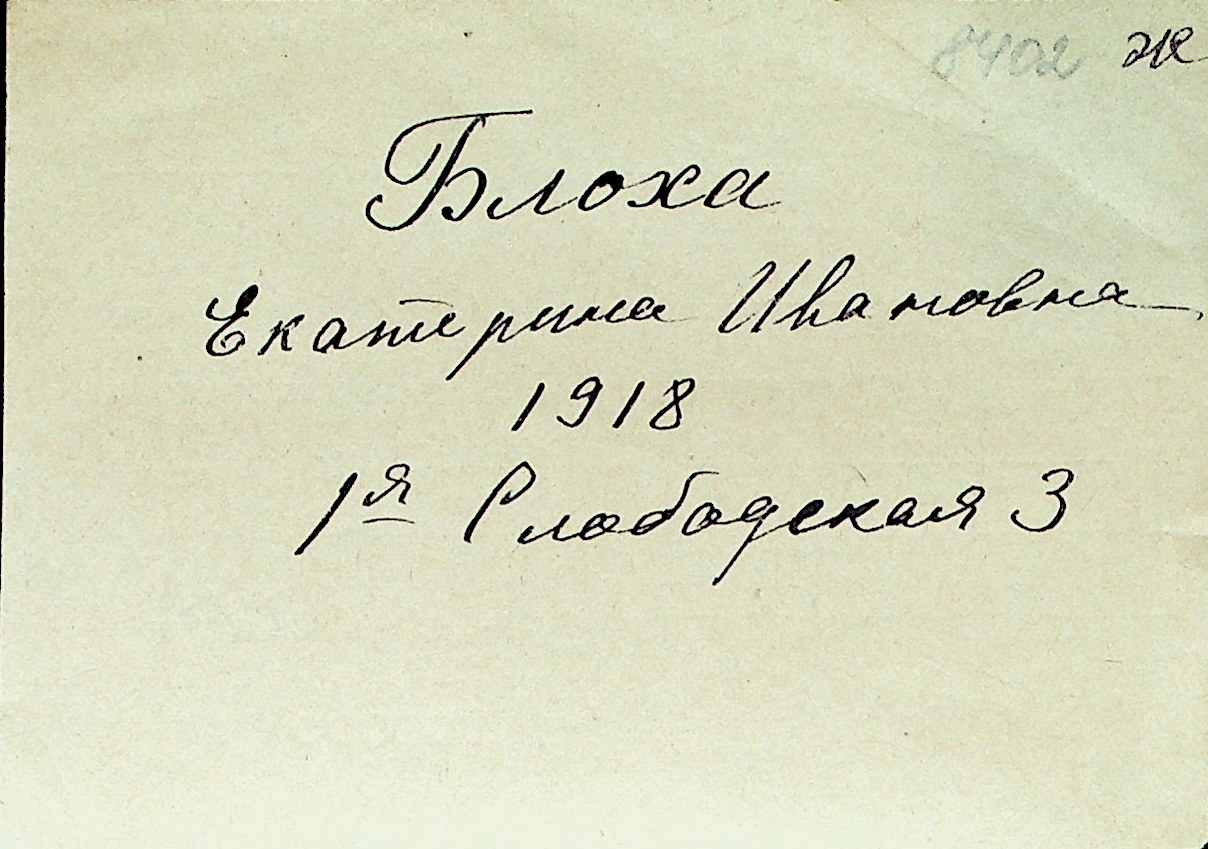 8402 ж
Блоха
Екатерина Ивановна
1918
1я Слободская 3